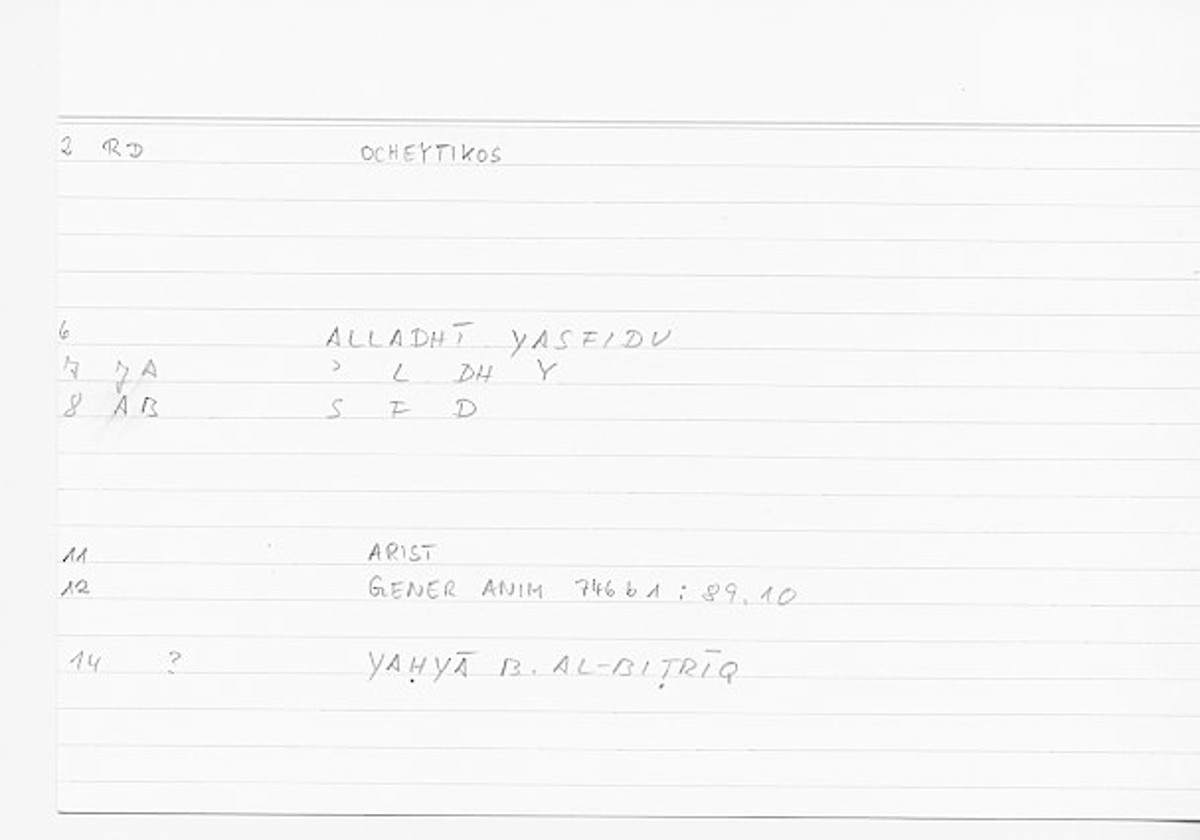 2 RD OCHEYTIKOS
6 ALLADHĪ YASFIDU
7 JA ʾ L DH Y
8 AB S F D
11 ARIST
12 GENER ANIM 746 b 1 : 89.10
14 ? YAḤYĀ B. AL-BIṬRĪQ